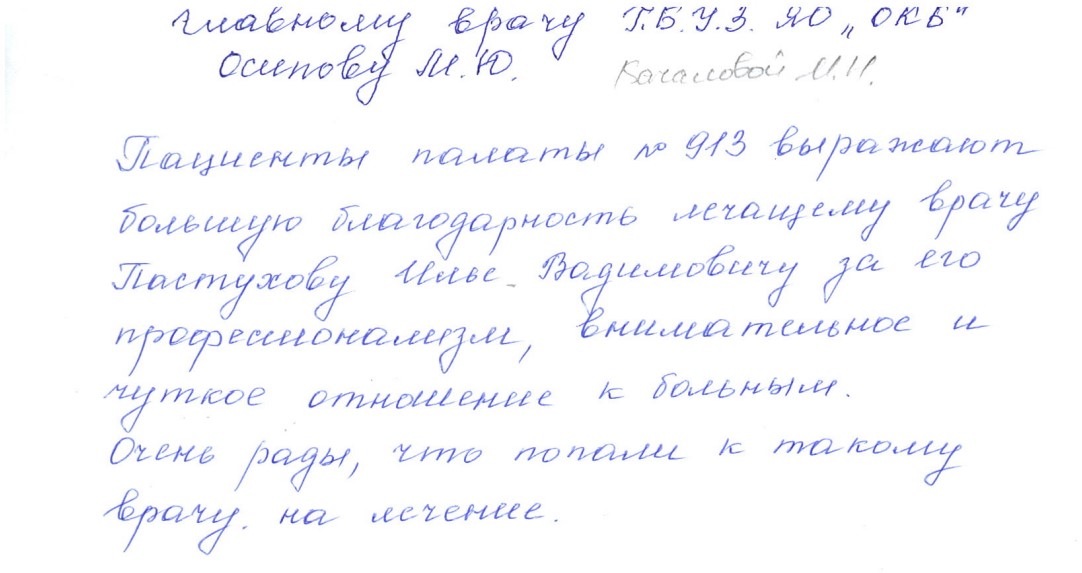 главному врачу Г.Б.У.З. ЯО „ОКБ"
Осипову М.Ю. Качаловой М.Н.
Пациенты палаты № 913 выражают
большую благодарность лечащему врачу
Пастухову Илье Вадимовичу за его
профессионализм, внимательное и
чуткое отношение к больным.
Очень рады, что попали к такому
врачу. на лечение.